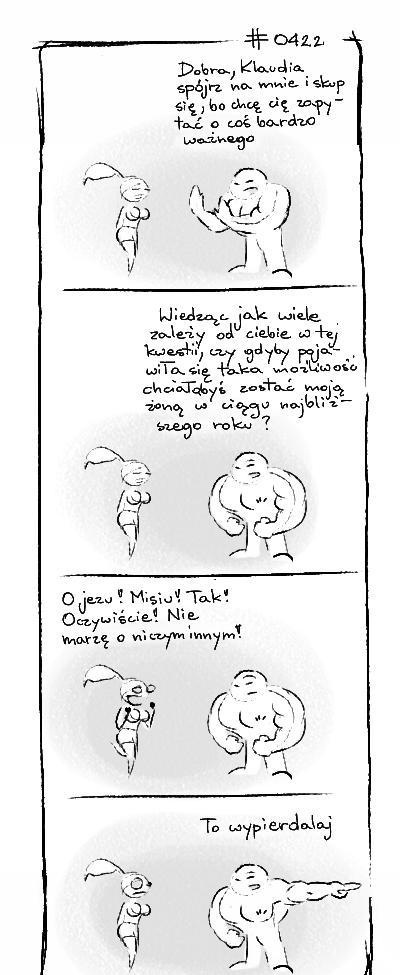 # 0422
Dobra, Klaudia
spójrz na mnie i skup
się, bo chcę cię zapy-
tać o coś bardzo
ważnego
Wiedząc jak wiele
zależy od ciebie w tej
kwestii, czy gdyby poja-
wiła się taka możliwość
chciałabyś zostać moją
żoną w ciągu najbliż-
szego roku?
O jezu! Misiu! Tak!
Oczywiście! Nie
marzę o niczym innym!
To wypierdalaj